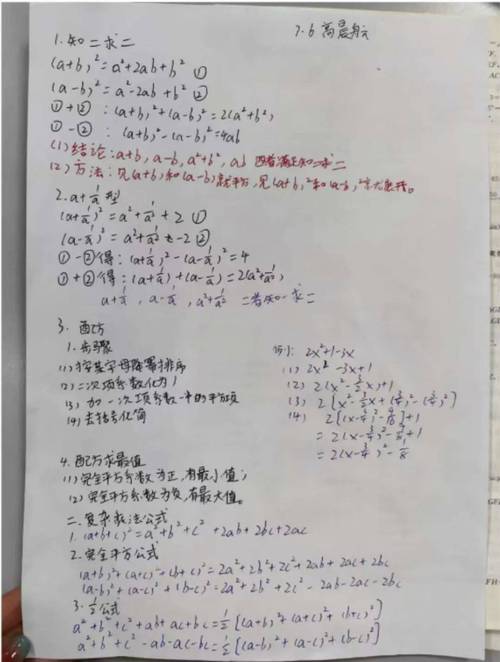 7.6 高晨航
1.知二求二
(a+b)²=a²+2ab+b² ①
(a-b)²=a²-2ab+b² ②
①+②:(a+b)²+(a-b)²=2(a²+b²)
①-②:(a+b)²-(a-b)²=4ab
(1)结论:a+b,a-b,a²+b²,ab 四者满足知二求二
(2)方法:见(a+b)和(a-b)就平方,见(a+b)²和(a-b)²
2.a+1/a型
(a+1/a)²=a²+1/a²+2 ①
(a-1/a)²=a²+1/a²-2 ②
①-②得:(a+1/a)²-(a-1/a)²=4
①+②得:(a+1/a)+(a-1/a)=2(a²+1/a²)
a+1/a,a-1/a,a²+1/a² 三者知一求二
3.配方
1.步骤
(1)按某字母降幂排序
(2)二次项系数化为1
(3)加一次项系数一半的平方项
(4)去括号化简
例:2x²+1-3x
(1)2x²-3x+1
(2)2(x²-3/2x)+1
(3)2[x²-3/2x+(3/4)²-(3/4)²]
(4)2[(x-3/4)²-9/16]+1
=2(x-3/4)²-9/8+1
=2(x-3/4)²-1/8
4.配方求最值
(1)完全平方系数为正,有最小值;
(2)完全平方系数为负,有最大值。
二.复杂乘法公式
1.(a+b+c)²=a²+b²+c²+2ab+2bc+2ac
2.完全平方公式
(a+b)²+(a+c)²+(b+c)²=2a²+2b²+2c²+2ab+2ac+2bc
(a-b)²+(a-c)²+(b-c)²=2a²+2b²+2c²-2ab-2ac-2bc
3.1/2公式
a²+b²+c²+ab+ac+bc=1/2[(a+b)²+(a+c)²+(b+c)²]
a²+b²+c²-ab-ac-bc=1/2[(a-b)²+(a-c)²+(b-c)²]